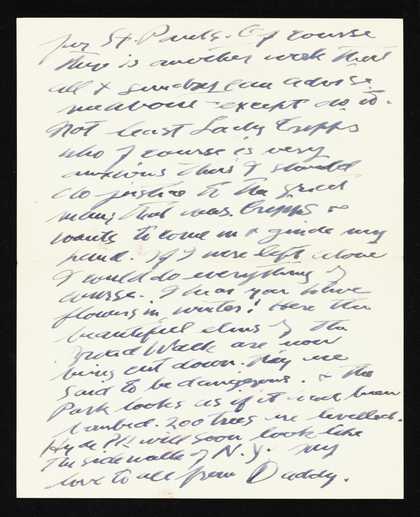 for St. Pauls. Of course
there is another work that
all & sundry can advise
me about - except do it.
Not least Lady Cripps
who of course is very
anxious that I should
do justice to the great
man that was Cripps &
wants to come in & guide my
hand. If I were left alone
I could do everything of
course. I hear you have
flowers in winter! Here the
beautiful elms of the
Broad Walk are now
being cut down. They are
said to be dangerous. & the
Park looks as if it had been
bombed. 200 trees are levelled.
Hyde Pk will soon look like
the sidewalks of N.Y. My
love to all from Daddy.